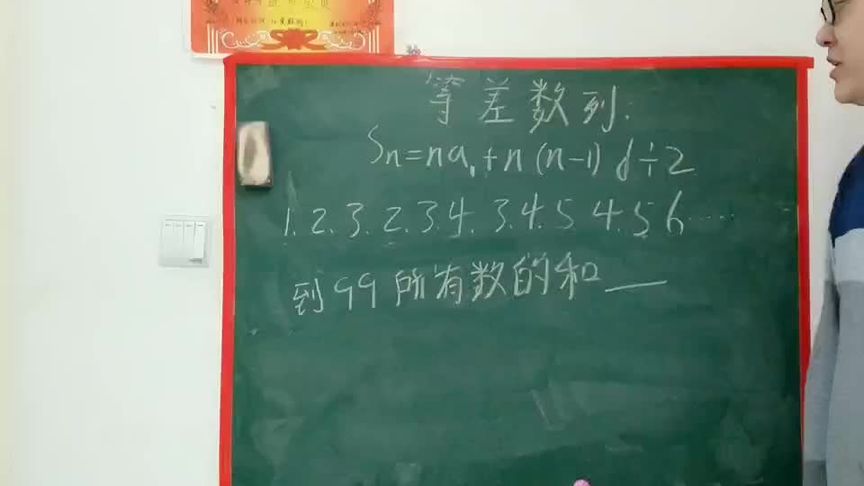 等差数列:
Sn=na₁+n(n-1)d÷2
1.2.3.2.3.4.3.4.5 4.5 6……
到99所有数的和__